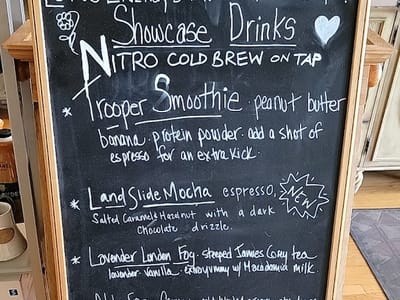 Showcase Drinks
NITRO COLD BREW ON TAP
* Trooper Smoothie peanut butter
banana. protein powder. add a shot of
espresso for an extra kick.
* LandSlide Mocha espresso, NEW
Salted Caramel & Hazelnut with a dark
chocolate drizzle.
* Lavender London Fog. steeped James Gray tea
lavender. vanilla. extra yummy w/ Macadamia milk